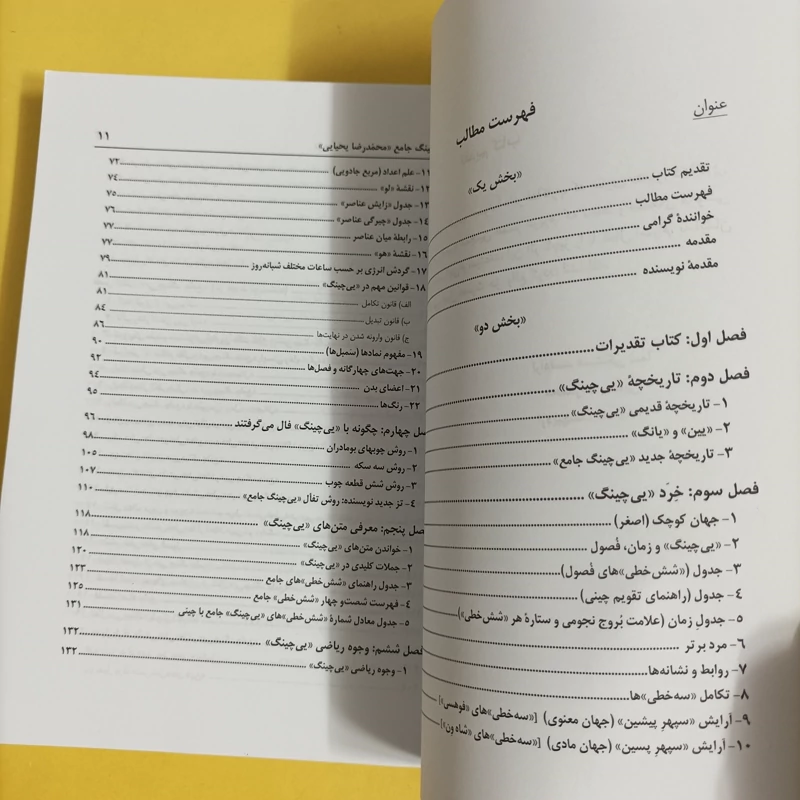 عنوان
فهرست مطالب
«بخش یک»
تقدیم کتاب
فهرست مطالب
خوانندهٔ گرامی
مقدمه
مقدمهٔ نویسنده
«بخش دو»
فصل اول: کتاب تقدیرات
فصل دوم: تاریخچهٔ «یی‌چینگ»
۱- تاریخچهٔ قدیمی «یی‌چینگ»
۲- «یین» و «یانگ»
۳- تاریخچهٔ جدید «یی‌چینگ جامع»
فصل سوم: خِرَد «یی‌چینگ»
۱- جهان کوچک (اصغر)
۲- «یی‌چینگ» و زمان، فُصول
۳- جدول («شش‌خطی»های فُصول)
۴- جدول (راهنمای تقویم چینی)
۵- جدولِ زمان (علامت بُروج نجومی و ستارهٔ هر «شش‌خطی»)
۶- مرد برتر
۷- روابط و نشانه‌ها
۸- تکامل «سه‌خطی»ها
۹- آرایش «سپهرِ پیشین» (جهان معنوی) [«سه‌خطی»های «فوهسی»]
۱۰- آرایش «سپهر پسین» (جهان مادی) [«سه‌خطی»های «شاه ون»]
ینگ جامع «محمّدرضا یحیایی» ۱۱
۱۱- علم اعداد (مربع جادویی) ۷۲
۱۲- نقشهٔ «لو» ۷۴
۱۳- جدول «زایش عناصر» ۷۵
۱۴- جدول «چیرگی عناصر» ۷۶
۱۵- رابطهٔ میان عناصر ۷۷
۱۶- نقشهٔ «هو» ۷۷
۱۷- گردش انرژی بر حسب ساعات مختلف شبانه‌روز ۷۹
۱۸- قوانین مهم در «یی‌چینگ» ۸۱
الف) قانون تکامل ۸۱
ب) قانون تبدیل ۸۴
ج) قانون وارونه شدن در نهایت‌ها ۸۶
۱۹- مفهوم نمادها (سَمبل‌ها) ۹۰
۲۰- جهت‌های چهارگانه و فصل‌ها ۹۲
۲۱- اعضای بدن ۹۴
۲۲- رنگ‌ها ۹۵
صل چهارم: چگونه با «یی‌چینگ» فال می‌گرفتند ۹۶
۱- روش چوبهای بومادران ۹۸
۲- روش سه سکه ۱۰۵
۳- روش شش قطعه چوب ۱۰۷
۴- تز جدید نویسنده: روش تفأل «یی‌چینگ جامع» ۱۱۰
صل پنجم: معرفی متن‌های «یی‌چینگ» ۱۱۸
۱- خواندن متن‌های «یی‌چینگ» ۱۱۸
۲- جملات کلیدی در «یی‌چینگ» ۱۲۰
۳- جدول راهنمای «شش‌خطی»های جامع ۱۲۳
۴- فهرست شصت‌و چهار «شش‌خطی» جامع ۱۲۵
۵- جدول معادل شمارهٔ «شش‌خطی»های «یی‌چینگ» جامع با چینی ۱۳۱
فصل ششم: وجوه ریاضی «یی‌چینگ» ۱۳۲
۱- وجوه ریاضی «یی‌چینگ» ۱۳۲